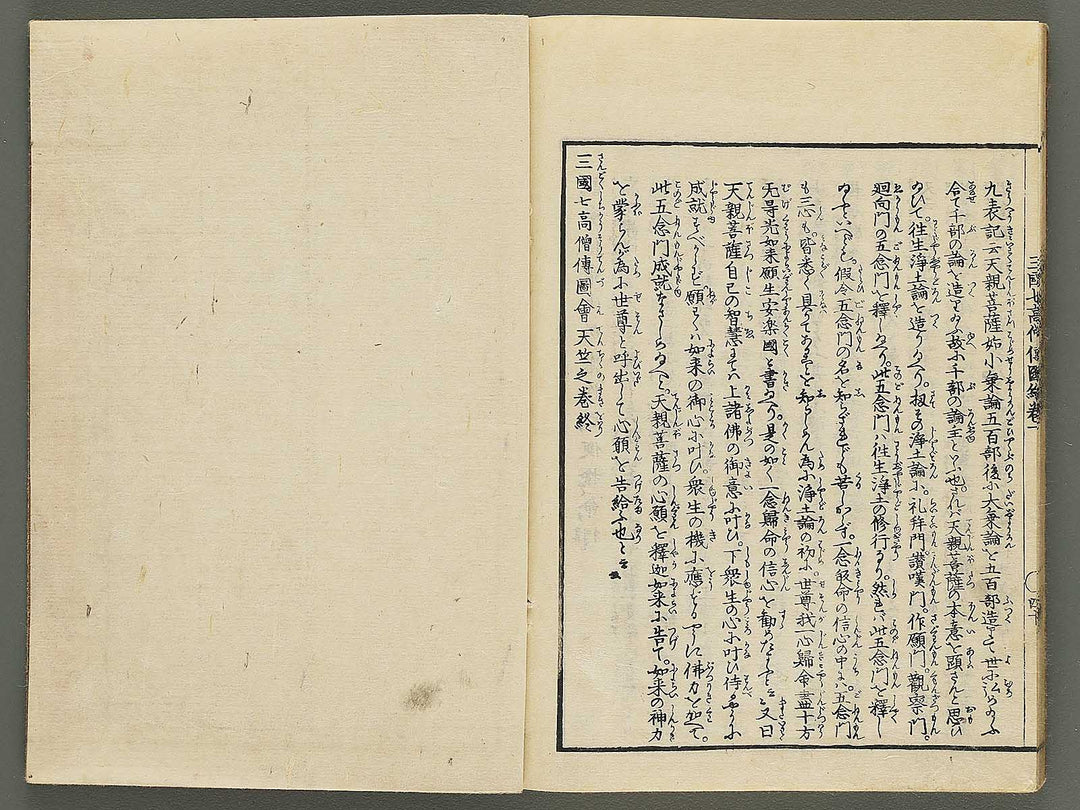 九表記云天親菩薩始小乗論五百部後小大乗論を五百部造りて世に弘めのふ
合て千部の論を造りゐふ故小千部の論主といふ也。されバ天親菩薩の本意を顕さんと思ひ
ゐひて。往生淨土論を造りゐへり。扨その淨土論小。礼拜門。讃嘆門。作願門。觀察門。
廻向門の五念門を釋しゐへり。此五念門ハ往生淨土の修行なり。然れバ此五念門を釋し
ゐすといへども。假令五念門の名を知らずれども苦しからず。一念歸命の信心の中にハ。五念門
も三心も。皆悉く具りてあることを知らしめん為小淨土論の初小。世尊我一心歸命盡十方
无碍光如来願生安楽國と書ゐへり。是の如く一念歸命の信心を勧めたまふと云々又曰
天親菩薩自己の智慧にてハ上諸佛の御意小叶ひ。下衆生の心小叶ひ侍ること小
成就すべからず。願くハ如来の御心小叶ひ。衆生の機小應ずるやうに佛力を加て。
此五念門成就なさしめゐへと。天親菩薩の心願を釋迦如来小告て。如来の神力
を蒙らんが為小世尊と呼出して心願を告給ふ也と云々
三國七高僧傳圖會 天竺之巻終
三國七高僧傳圖繪巻一